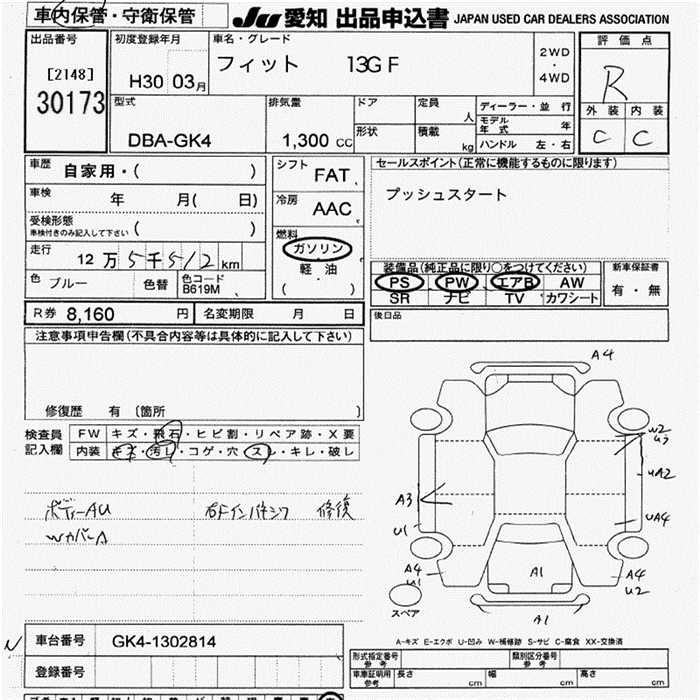 車内保管・守衛保管 JU 愛知 出品申込書 JAPAN USED CAR DEALERS ASSOCIATION
出品番号
[2148]
30173
初度登録年月
H30 03月
車名・グレード
フィット 13G F
2WD
・
4WD
評価点
R
外装 内装
C C
型式
DBA-GK4
排気量
1,300 CC
ドア
形状
定員
人
積載
kg
ディーラー・並行
モデル年式 年
ハンドル 左・右
車歴 自家用・( )
車検 年 月( 日)
受検形態
車検付きのみ記入して下さい ( )
走行 12万5千512km
色 ブルー 色替 色コード
B619M
シフト
FAT
冷房
AAC
燃料
ガソリン
軽・油
( )
セールスポイント(正常に機能するものに限ります)
プッシュスタート
装備品(純正品に限り○をつけてください)
PS PW エアB AW
SR ナビ TV カワシート
新車保証書
有・無
R券 8,160 円 名変期限 月 日
後日品
注意事項申告欄(不具合内容等は具体的に記入して下さい)
修復歴 有 〔箇所
検査員
記入欄
FW キズ・飛石・ヒビ割・リペア跡・X要
内装 キズ・汚レ・コゲ・穴・スレ・キレ・破レ
ボディーAU
修復
WカバーA
A4
W2
U3
UA2
A3
U1
UA4
A4
U1
A1
A4
U2
スペア
A1
A-キズ E-エクボ U-凹み W-補修跡 S-サビ C-腐食 XX-交換済
N
車台番号 GK4-1302814
登録番号
形式指定番号
参考
類別区分番号
参考
車車証明用
参考
長さ cm 幅 cm 高さ cm